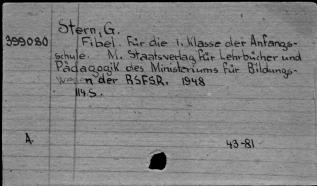 Stern, G.
399080 Fibel. Für die 1. Klasse der Anfangs-
schule. M. Staatsverlag für Lehrbücher und
Pädagogik des Ministeriums für Bildungs-
wesen der RSFSR. 1948
114 S.
A. 43-81